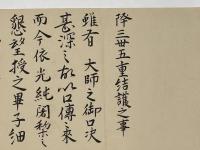 降三世五重結護之事
雖有大師之御口決
甚深之故以口傳來
而今依光純闍梨之
懇望授之畢子細